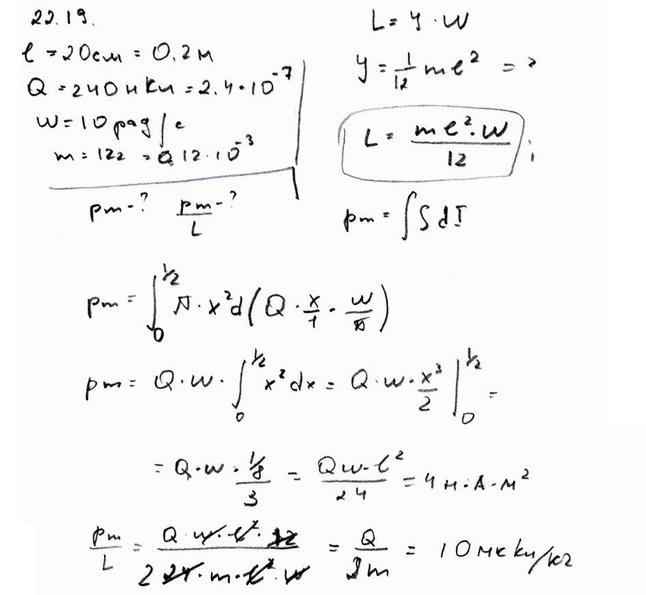 22.19.
l = 20см = 0,2м
Q = 240 нКл = 2,4·10^-7
w = 10 рад/с
m = 12г = 12·10^-3
pm - ? pm/L - ?
L = Y · w
Y = 1/12 ml² = ?
L = ml²·w/12 ;
pm = ∫S dI
pm = ∫_0^{1/2} π·x²d(Q · x/1 · w/π)
pm = Q·w·∫_0^{1/2} x²dx = Q·w·x³/2 |_0^{1/2} =
= Q·w · 1/8/3 = Qw·l²/24 = 4н·А·м²
pm/L = Q·w·l²·12/2 24·m·l²·w = Q/2m = 10мкКл/кг